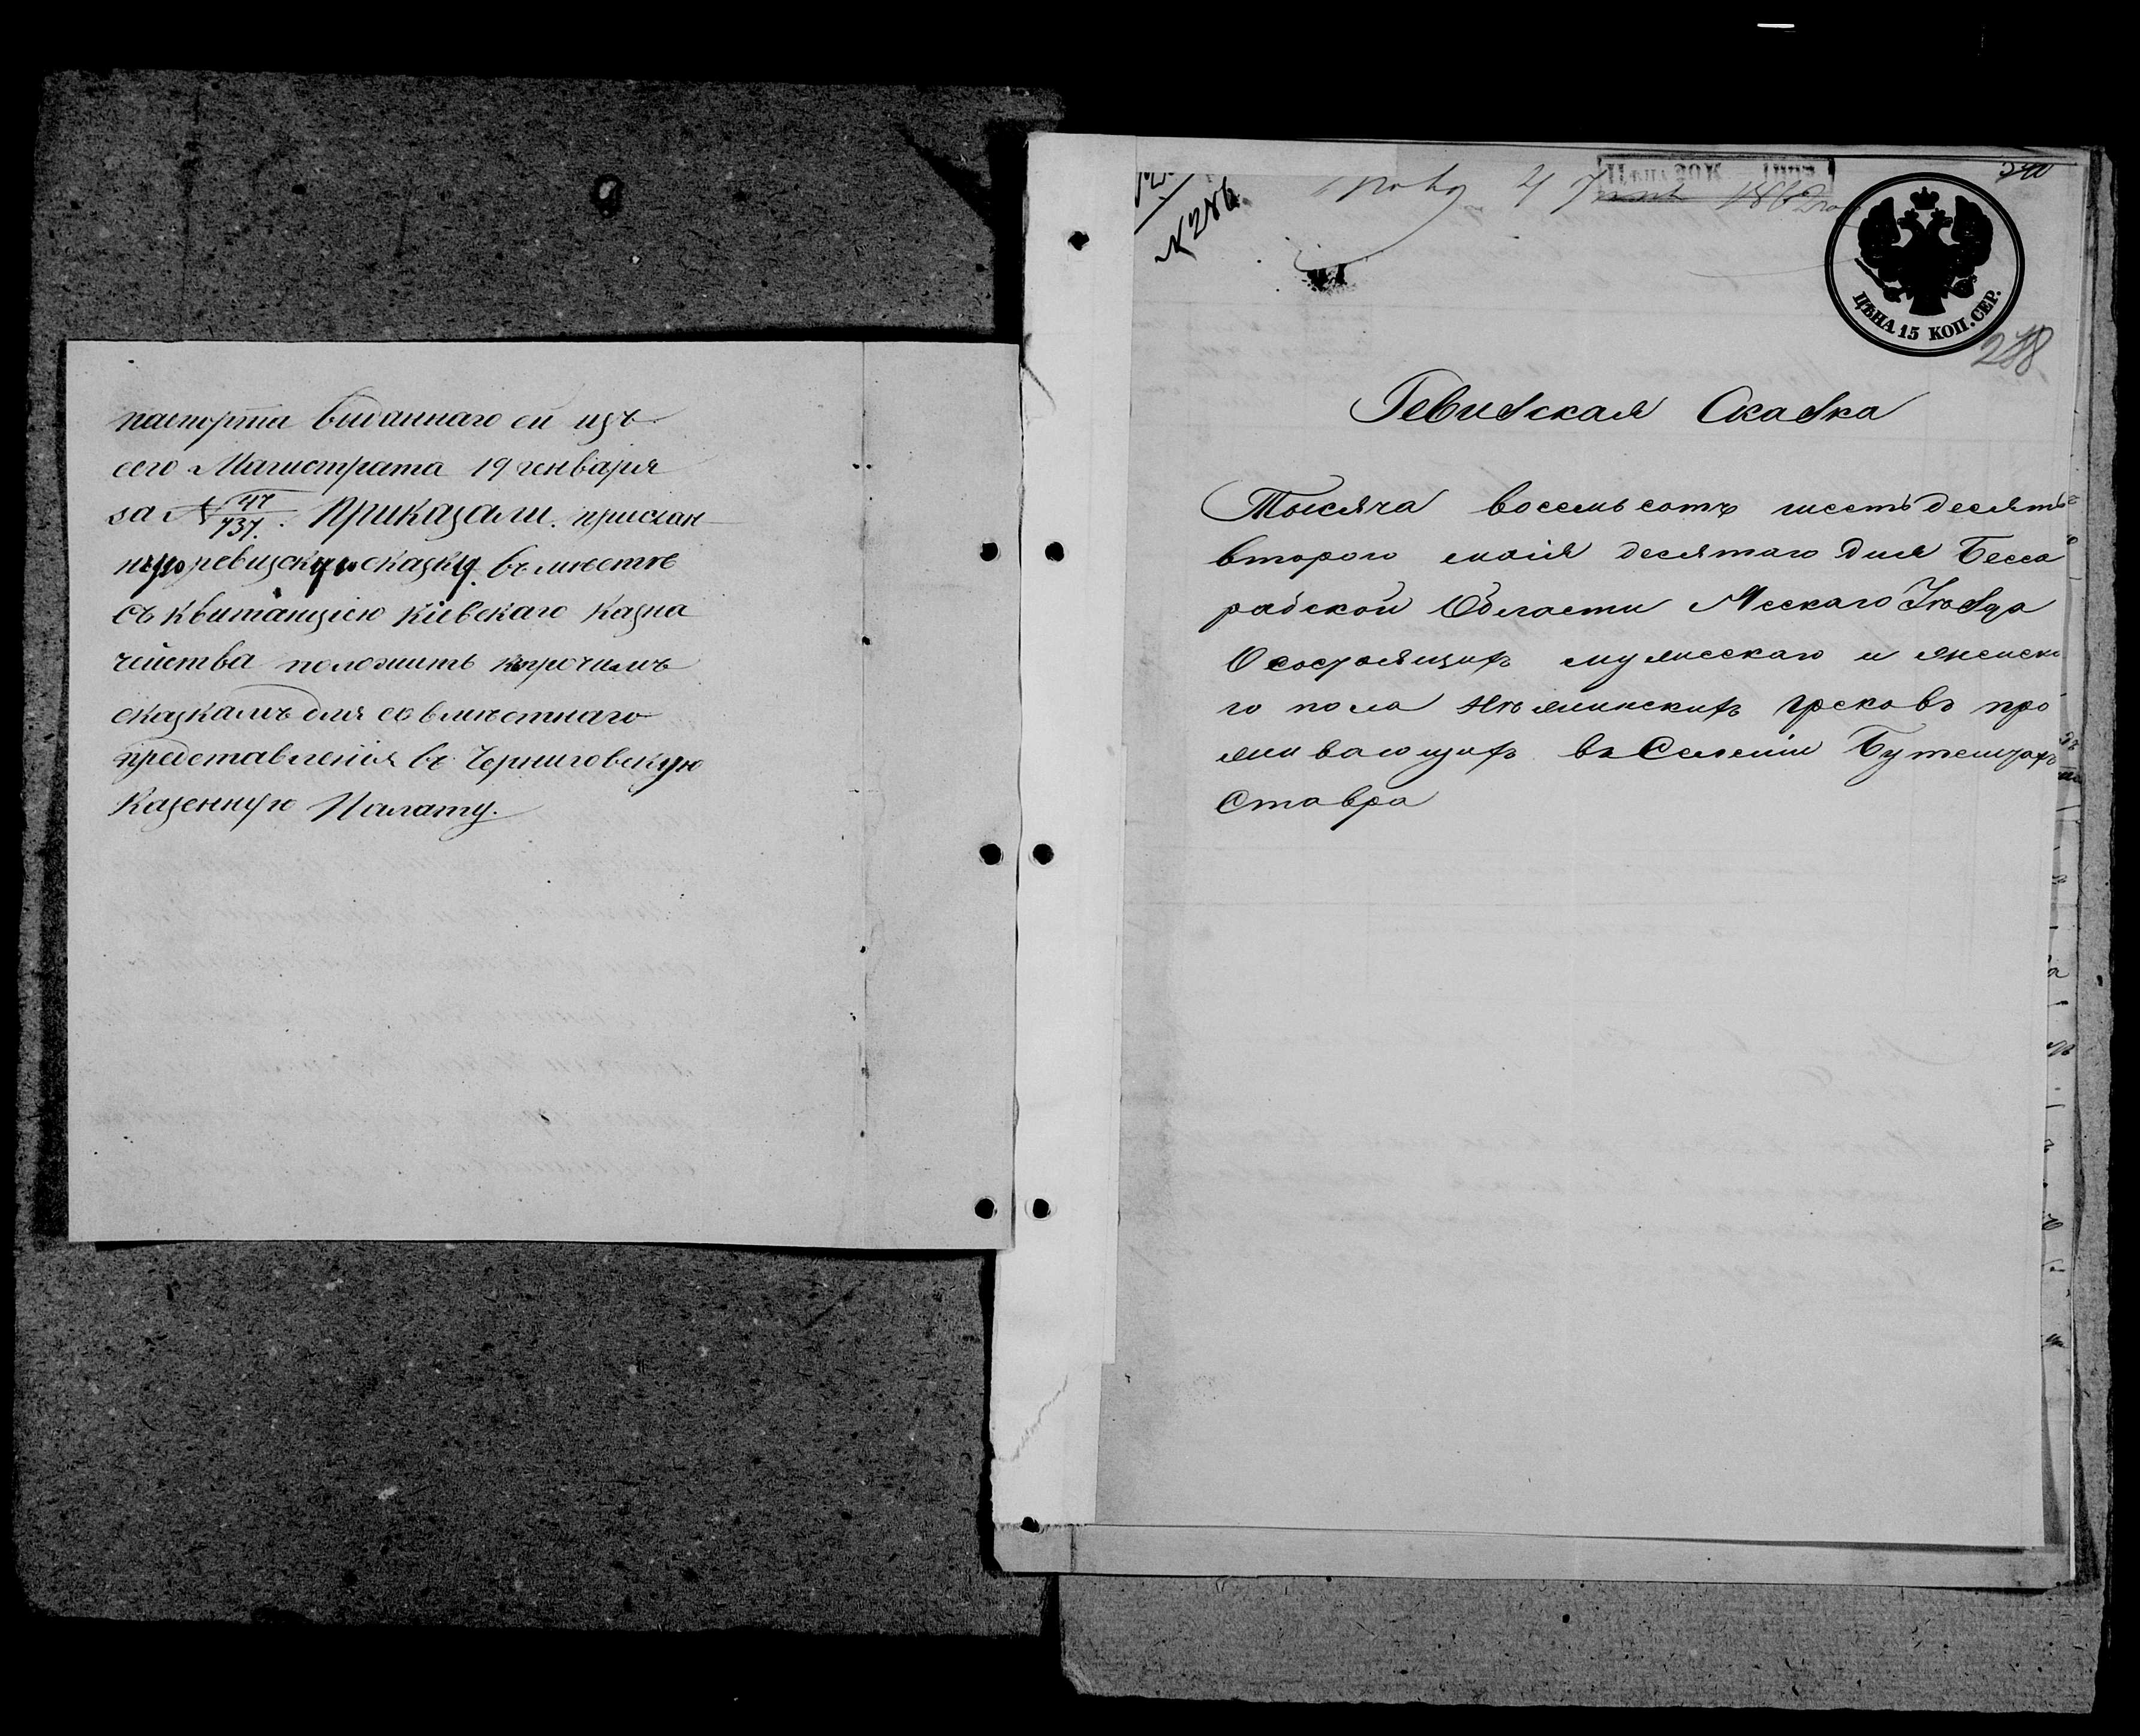 паспорта выданнаго ей изъ
сего Магистрата 19 генваря
за № 47/737. Приказали. прислан
ную ревизскую сказку вѣместѣ
съ квитанцiею Кiевскаго Казна
чейства положить къ прочимъ
сказкамъ для совмѣстнаго
представленiя въ Черниговскую
Казенную Палату.
№ 286
240
ЦѢНА 15 КОП. СЕР.
288
Ревизская Сказка
Тысяча восемьсотъ шестьдесятъ
второго маiя десятаго дня Бесса
рабской Области Ясскаго Уѣзда
О состоящихъ мужескаго и женска
го пола Нѣжинскихъ грековъ про
живающихъ въ Селенiи Бутештахъ
Ставра